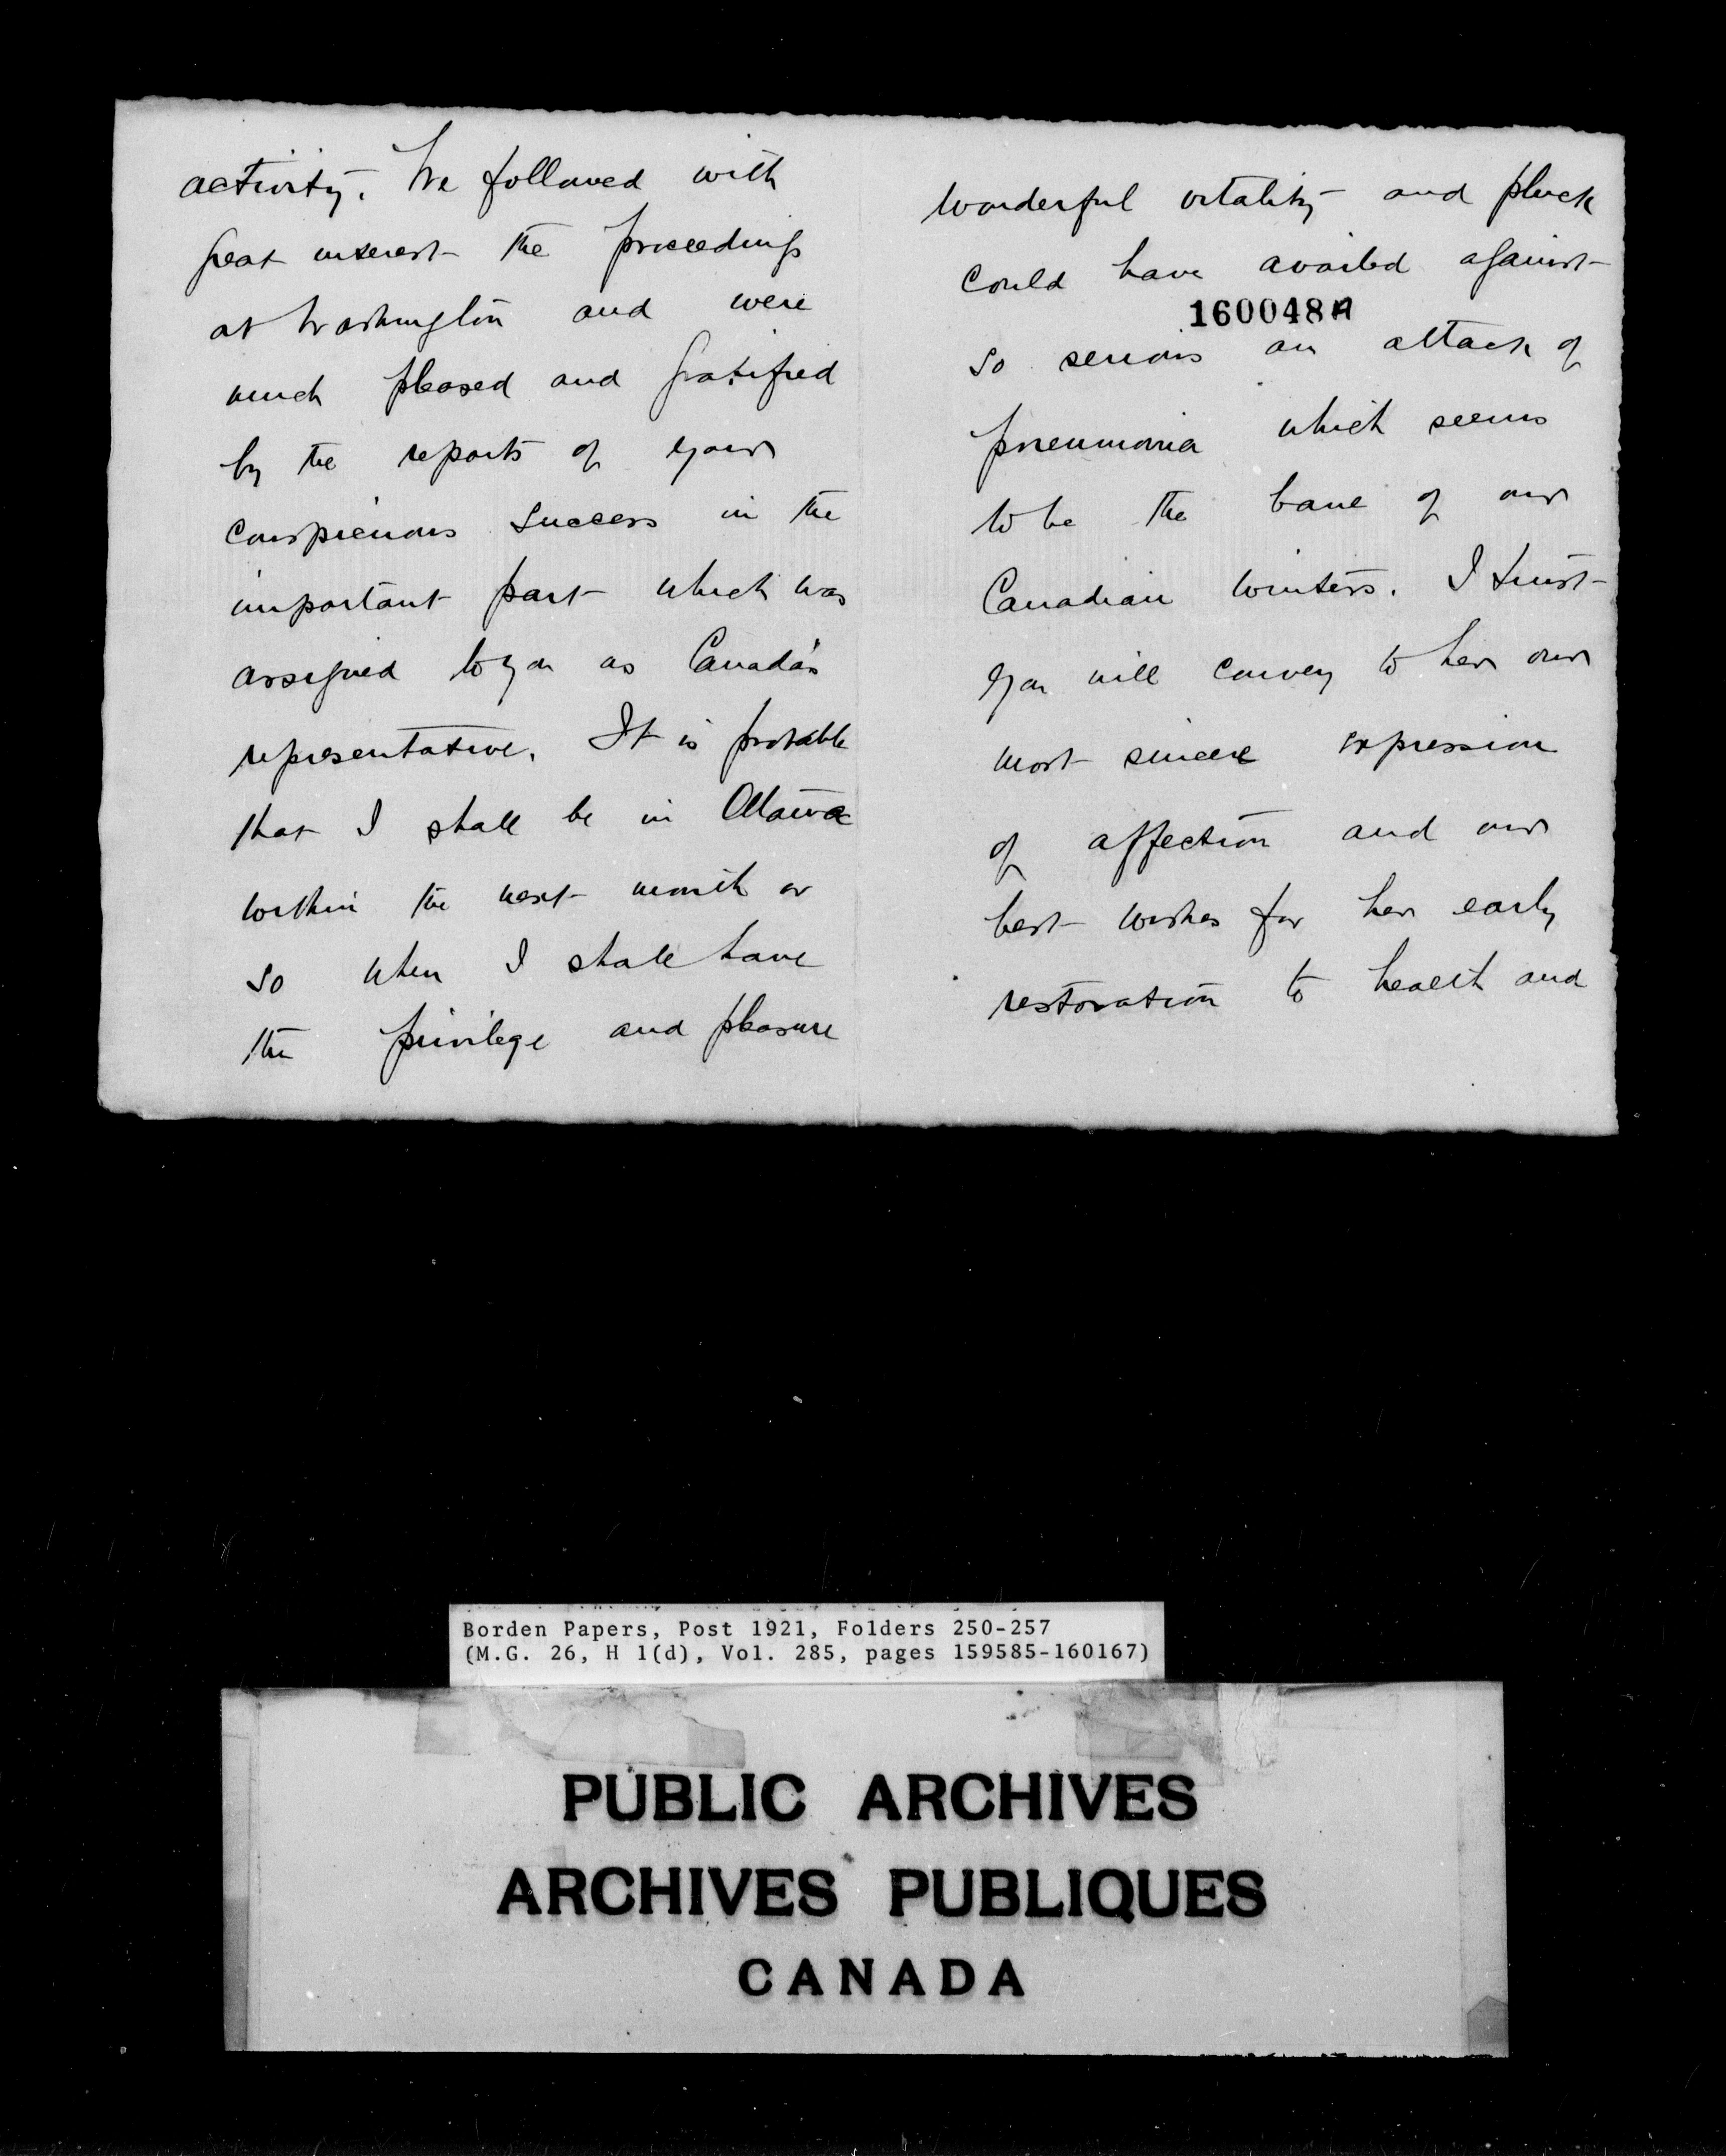 activity. We followed with
great interest the proceedings
at Washington and were
much pleased and gratified
by the reports of your
conspicuous success in the
important part which was
assigned to you as Canada's
representative. It is probable
that I shall be in Ottawa
within the next month or
so when I shall have
the privilege and pleasure
wonderful vitality and pluck
could have availed against
160048A
so serious an attack of
pneumonia which seems
to be the bane of our
Canadian winters. I trust
you will convey to her our
most sincere expression
of affection and our
best wishes for her early
restoration to health and
Borden Papers, Post 1921, Folders 250-257
(M.G. 26, H 1(d), Vol. 285, pages 159585-160167)
PUBLIC ARCHIVES
ARCHIVES PUBLIQUES
CANADA